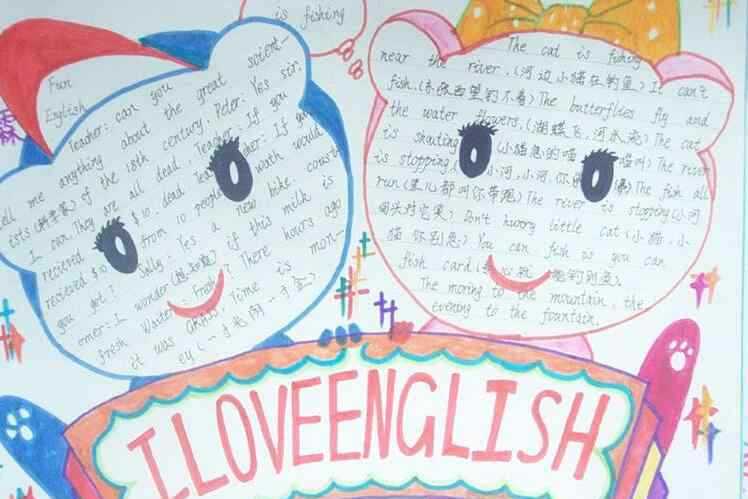 is fishing
Fun
English
Teacher: can you
tell me anything about the great scient-
ists (科学家) of the 18th century. Peter: Yes sir.
I can. They are all dead. Teacher: If you
recieved $10.
from 10 people
recieved $10
you get? Sally: Yes a new bike.
emer: I wonder if this milk is
fresh Waiter: There hours ago
it was Time is mon-
ey (一寸光阴一寸金)
The cat is fishing
near the river. (河边小猫在钓鱼) It can't
fish. (东张西望钓不着) The butterflies fly and
the water flowers. (湖蝶飞,河水流) The cat
is shouting (小猫急的喵喵叫) The river
is stopping. (小河,小河,你别 The fish all
run (鱼儿都叫你带跑) The river is stopping (小河
回头对它笑) Don't hurry little cat (小猫,小
猫你别急) You can fish is you can
fish card
The moring to the mountain, the
evening to the fountain.
I LOVE ENGLISH